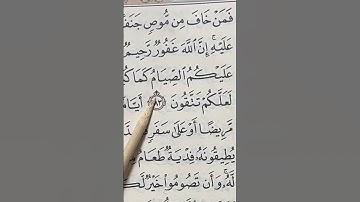 فَمَنْ خَافَ مِن مُّوصٍ جَنَفًا
عَلَيْهِ ۚ إِنَّ اللَّهَ غَفُورٌ رَّحِيمٌ
عَلَيْكُمُ الصِّيَامُ كَمَا كُ
لَعَلَّكُمْ تَتَّقُونَ ١٨٣ أَيَّامًا
مَّرِيضًا أَوْ عَلَىٰ سَفَرٍ
يُطِيقُونَهُ فِدْيَةٌ طَعَامُ
لَّهُ ۚ وَأَن تَصُومُوا خَيْرٌ لَّكُ